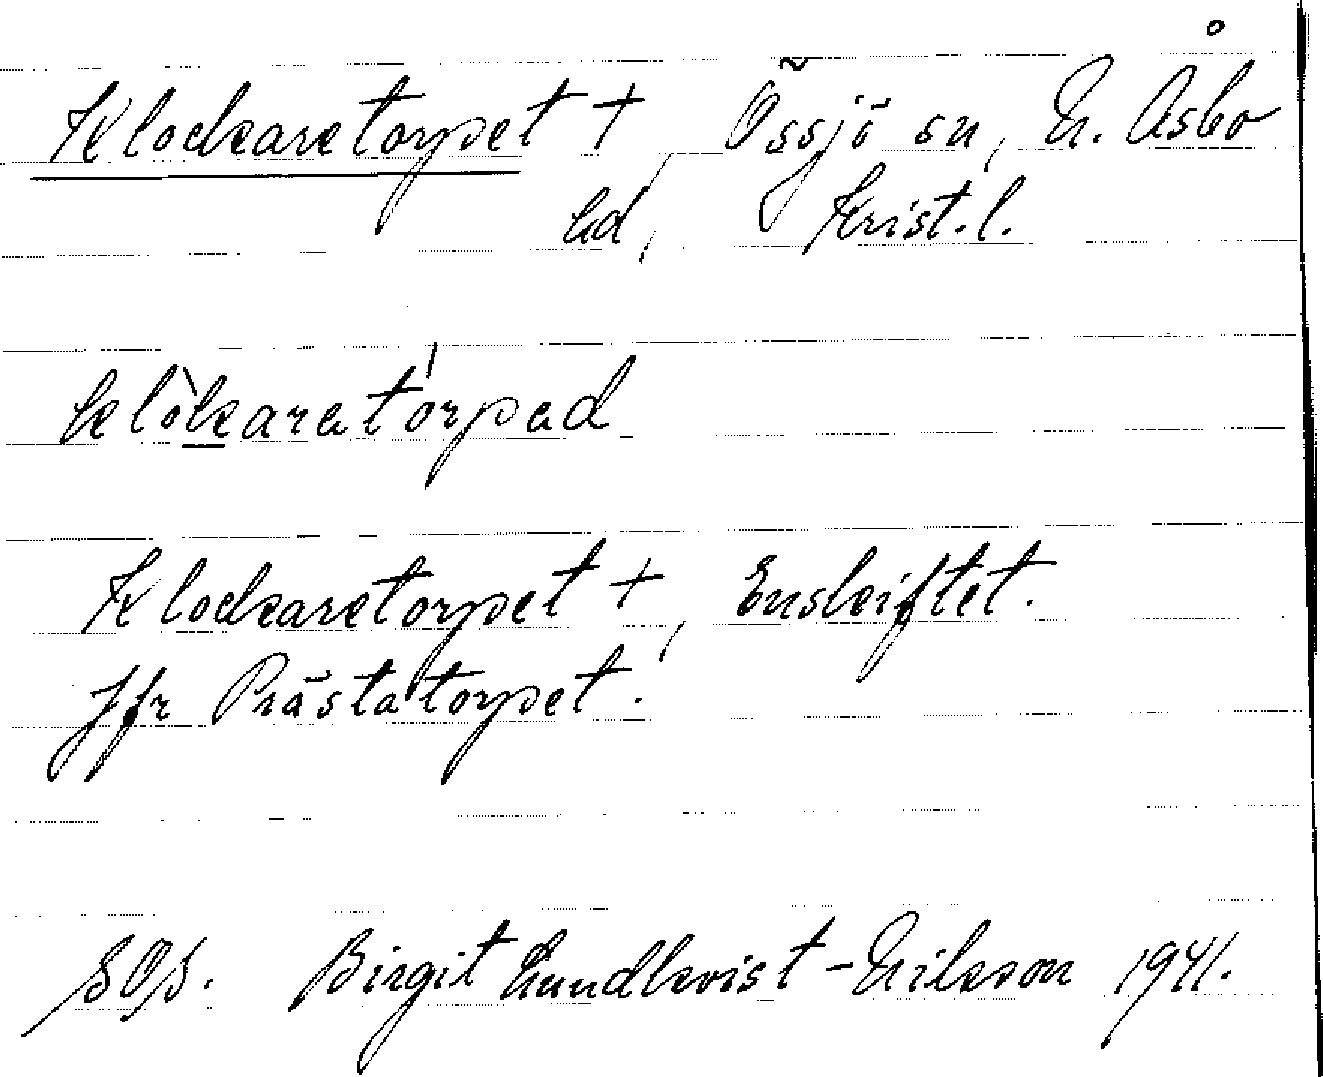 Klockaretorpet + Össjö sn, N. Åsbo
hd, Krist. l.
klòkaratórpad
Klockaretorpet +, Enskiftet.
Jfr Prästatorpet.
SOS. Birgit Lundkvist-Nilsson 1941.